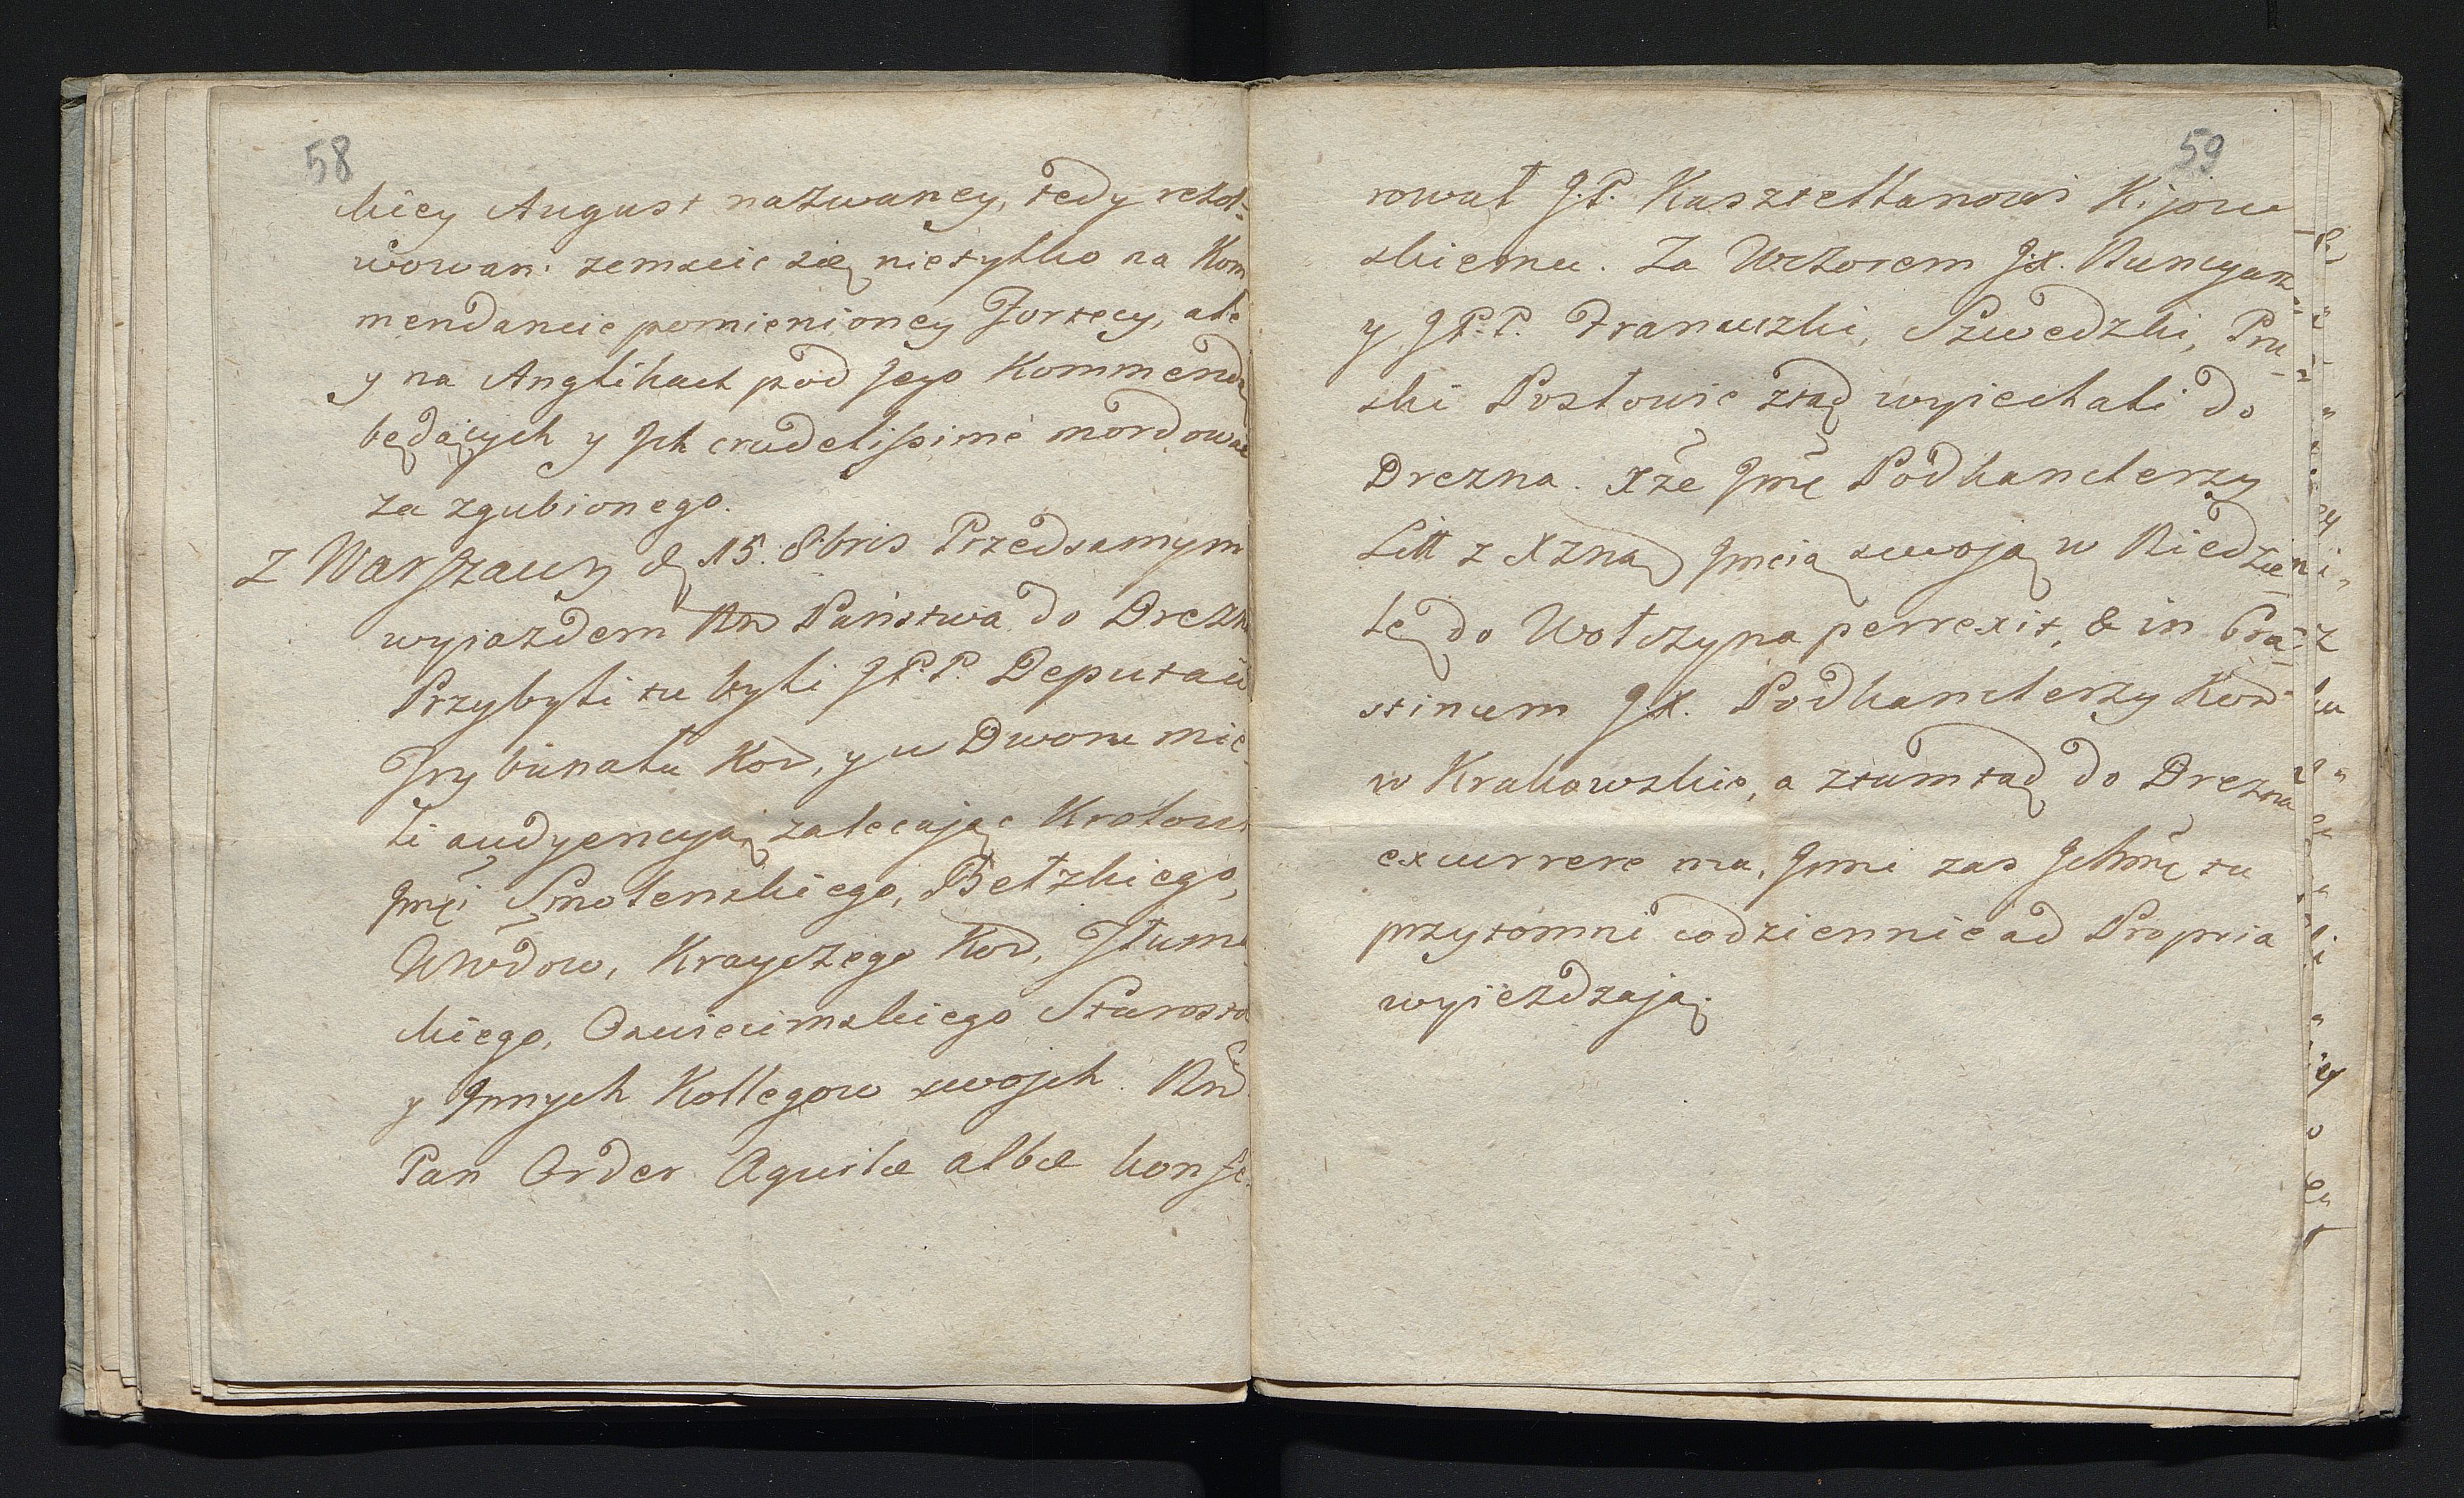 58
kiey August nazwaney, tedy rezol=
wowan: zemscic się nietylko na Kom
mendancie pomienioney Fortecy, ale
y na Anglikach pod Jego Kommendą
będących y Jch crudelissime mordowac
za zgubionego.
Z Warszawy d. 15. 8bris Przedsamym
wyiazdem Państwa do Drezna
Przybyli tu byli JP.P. Deputaci
Trybunatu Kor, y u Dworu mie
li audyencyą zalecając Krolowi
Jmći Smolenskiego, Bełzkiego,
Wwdow, Krayczego Kor, Tłuma
kiego, Oswiecimskiego Starosto
y Jnnych Kollegow swojch.
Pan Order Aquilæ albæ konfe
59
rował J.P. Kasztellanowi Kijow
skiemu. Za Wzorem J.X. Nuncyusz
y JP.P. Francuzki, Szwedzki, Pru
ski Posłowie ztąd wyiechali do
Drezna. Xże Jmć Podkanclerzy
Litt z Xzną Jmcią swoją w Niedzie
lę do Wołczyna perrexit, & in Cra
stinum J.X. Podkanclerzy Kor
w Krakowskie, a ztamtąd do Drezna
excurrere ma, Jnni zas Jchmć tu
przytomni codziennie ad Propria
wyieżdzają.